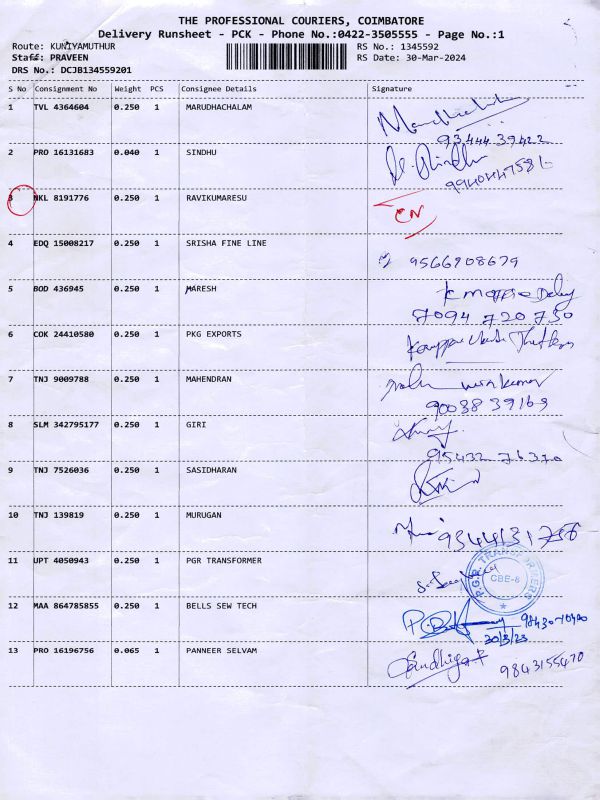 THE PROFESSIONAL COURIERS, COIMBATORE
Delivery Runsheet - PCK - Phone No.:0422-3505555 - Page No.:1
Route: KUNIYAMUTHUR RS No.: 1345592
Staff: PRAVEEN RS Date: 30-Mar-2024
DRS No.: DCJB134559201
S No Consignment No Weight PCS Consignee Details Signature
1 TVL 4364604 0.250 1 MARUDHACHALAM
93444 39422
2 PRO 16131683 0.040 1 SINDHU
3 NKL 8191776 0.250 1 RAVIKUMARESU CN
4 EDQ 15008217 0.250 1 SRISHA FINE LINE 9566908679
5 BOD 436945 0.250 1 MARESH
7094 720 730
6 COK 24410580 0.250 1 PKG EXPORTS
7 TNJ 9009788 0.250 1 MAHENDRAN
90038 39169
8 SLM 342795177 0.250 1 GIRI
95432 76370
9 TNJ 7526036 0.250 1 SASIDHARAN
10 TNJ 139819 0.250 1 MURUGAN
11 UPT 4050943 0.250 1 PGR TRANSFORMER P.G.R. TRANSFORMERS CBE-8
12 MAA 864785855 0.250 1 BELLS SEW TECH
30/3/23
13 PRO 16196756 0.065 1 PANNEER SELVAM Sandhiya P 9843155470